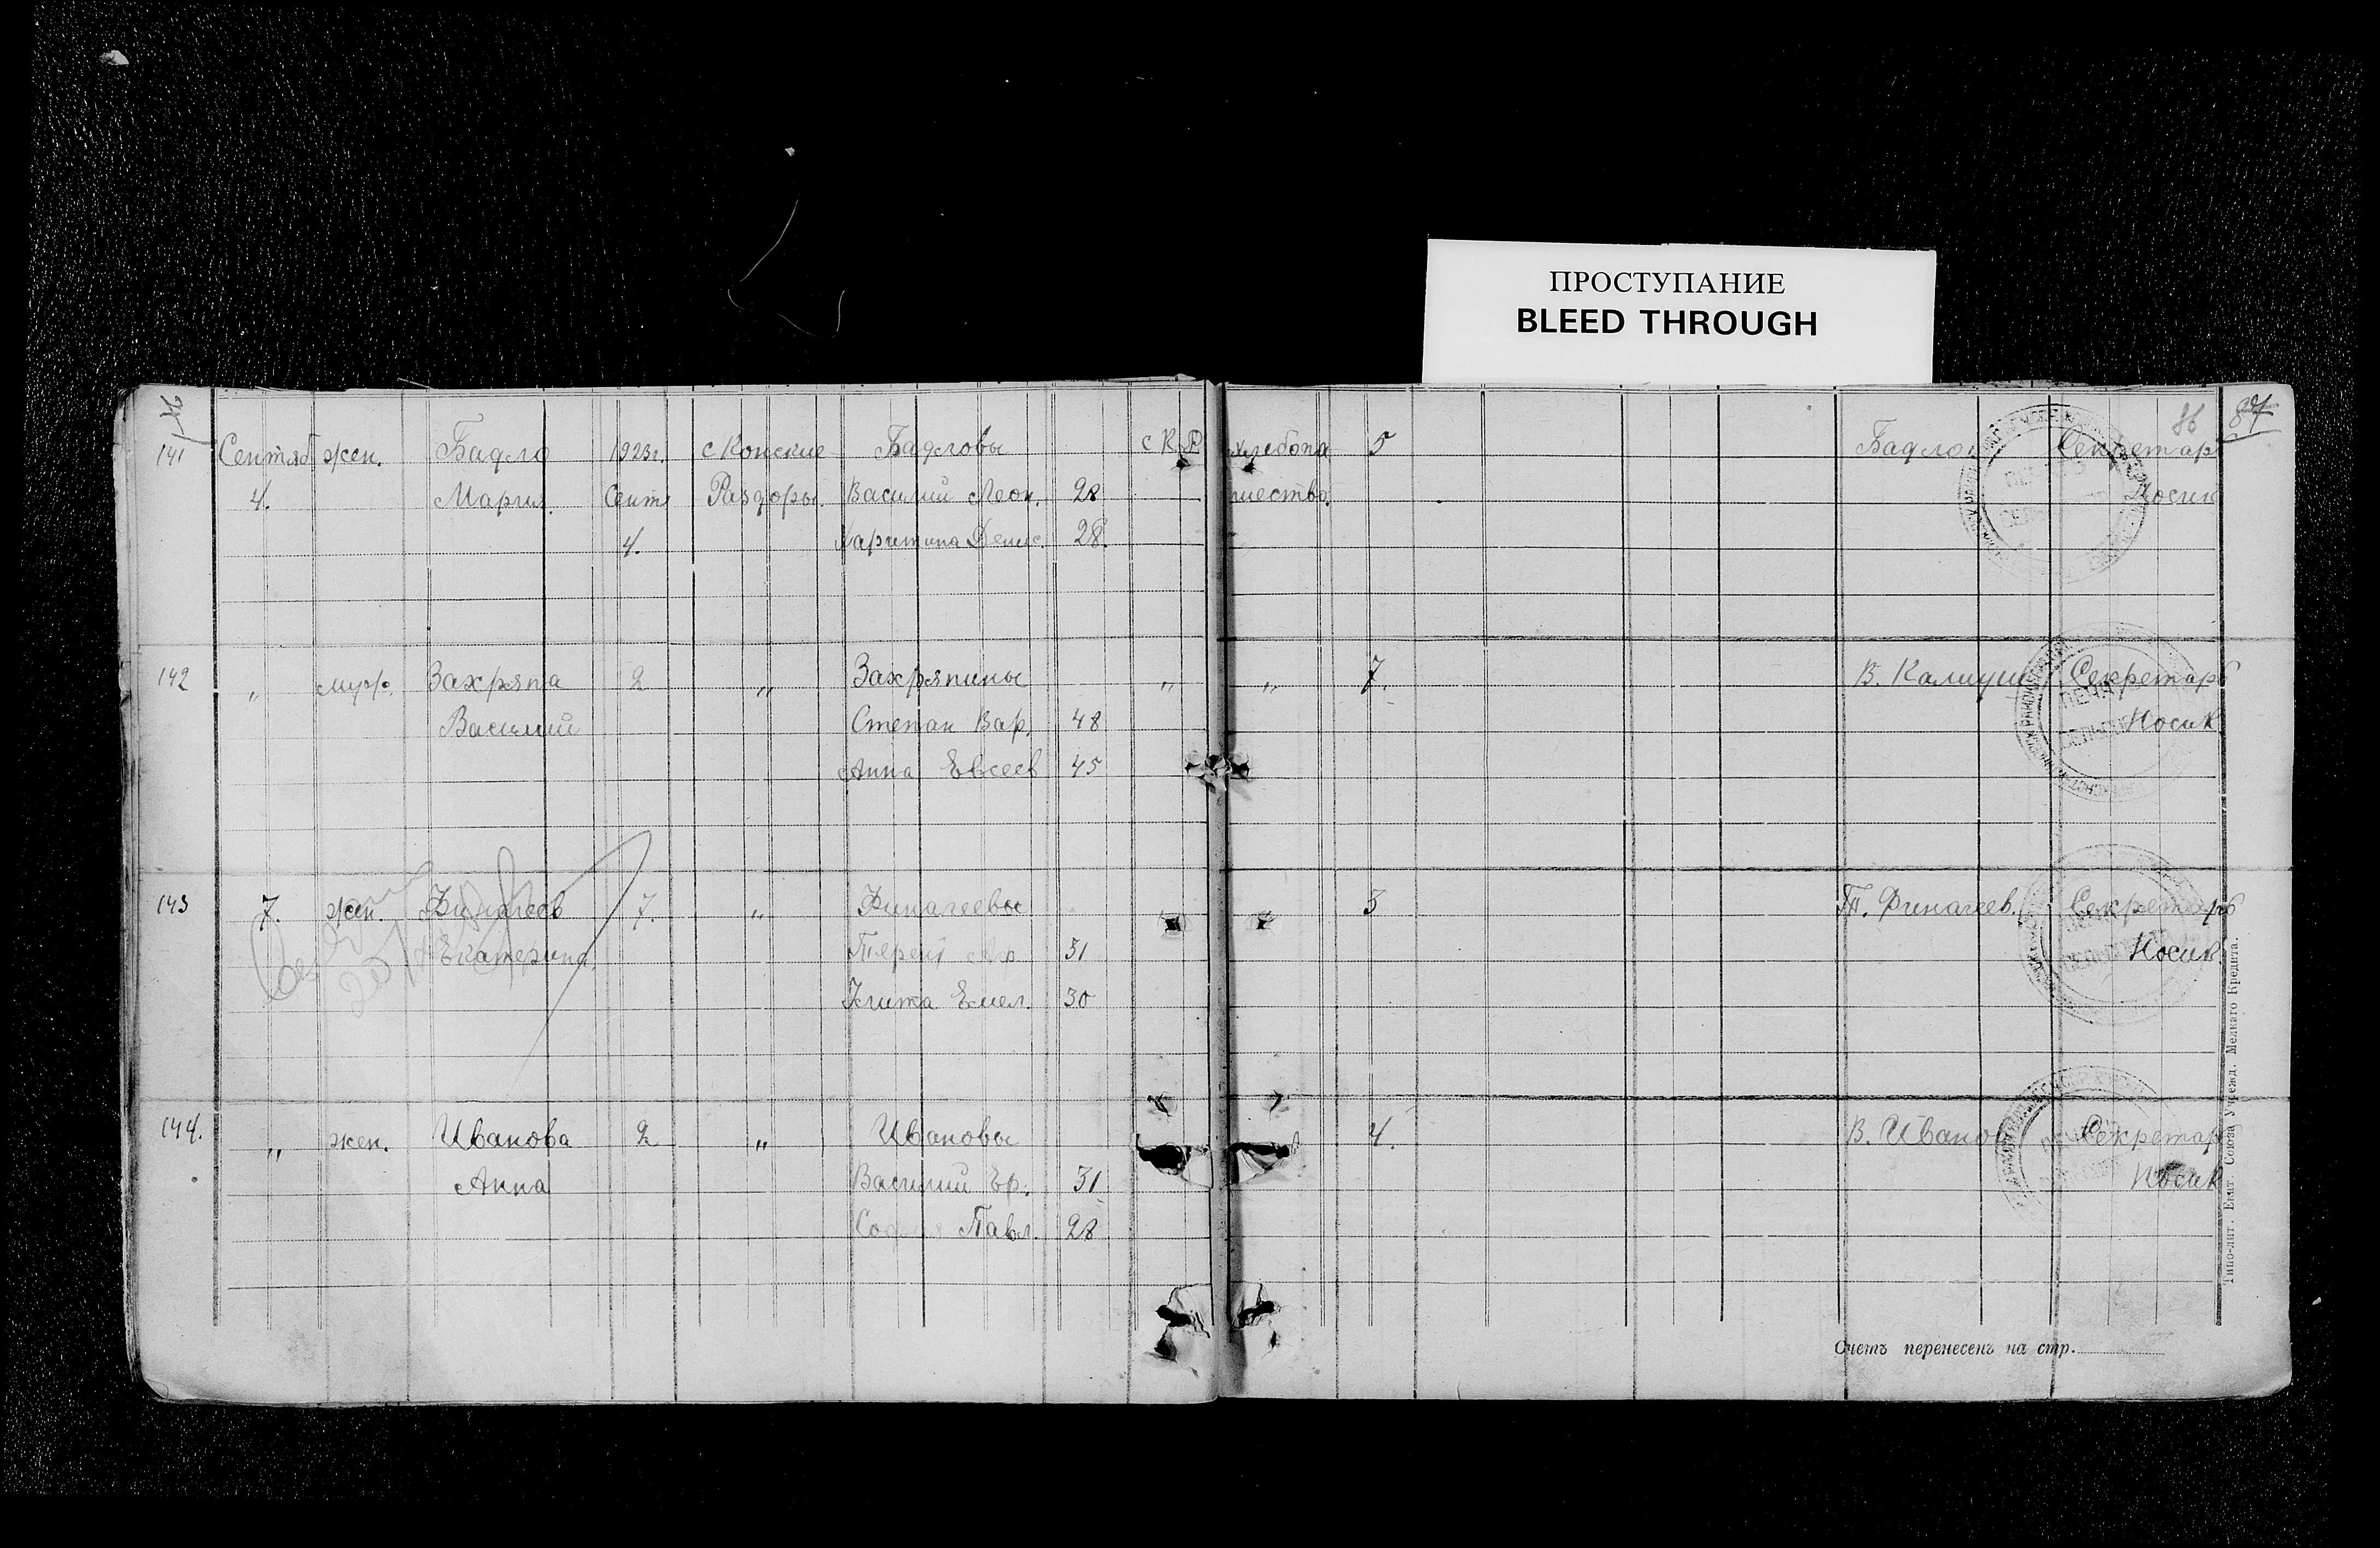 ПРОСТУПАНИЕ
BLEED THROUGH
86 87
141 Сентяб жен. Бадло 1923г. с Конские Бадловы с К. Р. хлебопа 5 Бадло Секретар
4. Мария. Сент Раздоры. Василий Леон. 28 шество. Носик
4. Харитина Денис. 28.
142 " муж. Захряпа 2 " Захряпины " " 7. В. Калиуш Секретарь
Василий Степан Вар. 48 Носик
Анна Евсеев 45
143 7. жен. 7. " Финагеевы " " 5 Т. Финагеев. Секретарь
Екатерина. Терен 31 Носик
Емел. 30
144. " жен. Иванова 2 " Ивановы 4. В. Иванов Секретар
Анна Василий Ер. 31 Носик
София Павл. 28
Типо-лит. Екат. Союза Учрежд. Мелкаго Кредита.
Счетъ перенесенъ на стр.